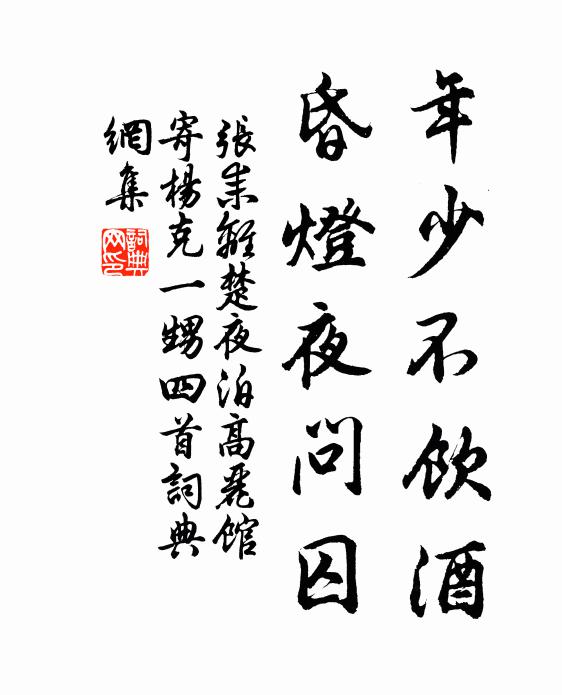 年少不飲酒
昏燈夜問囚
張耒離楚夜泊高麗館
寄楊克一甥四首詞典
網集
詞典
网印